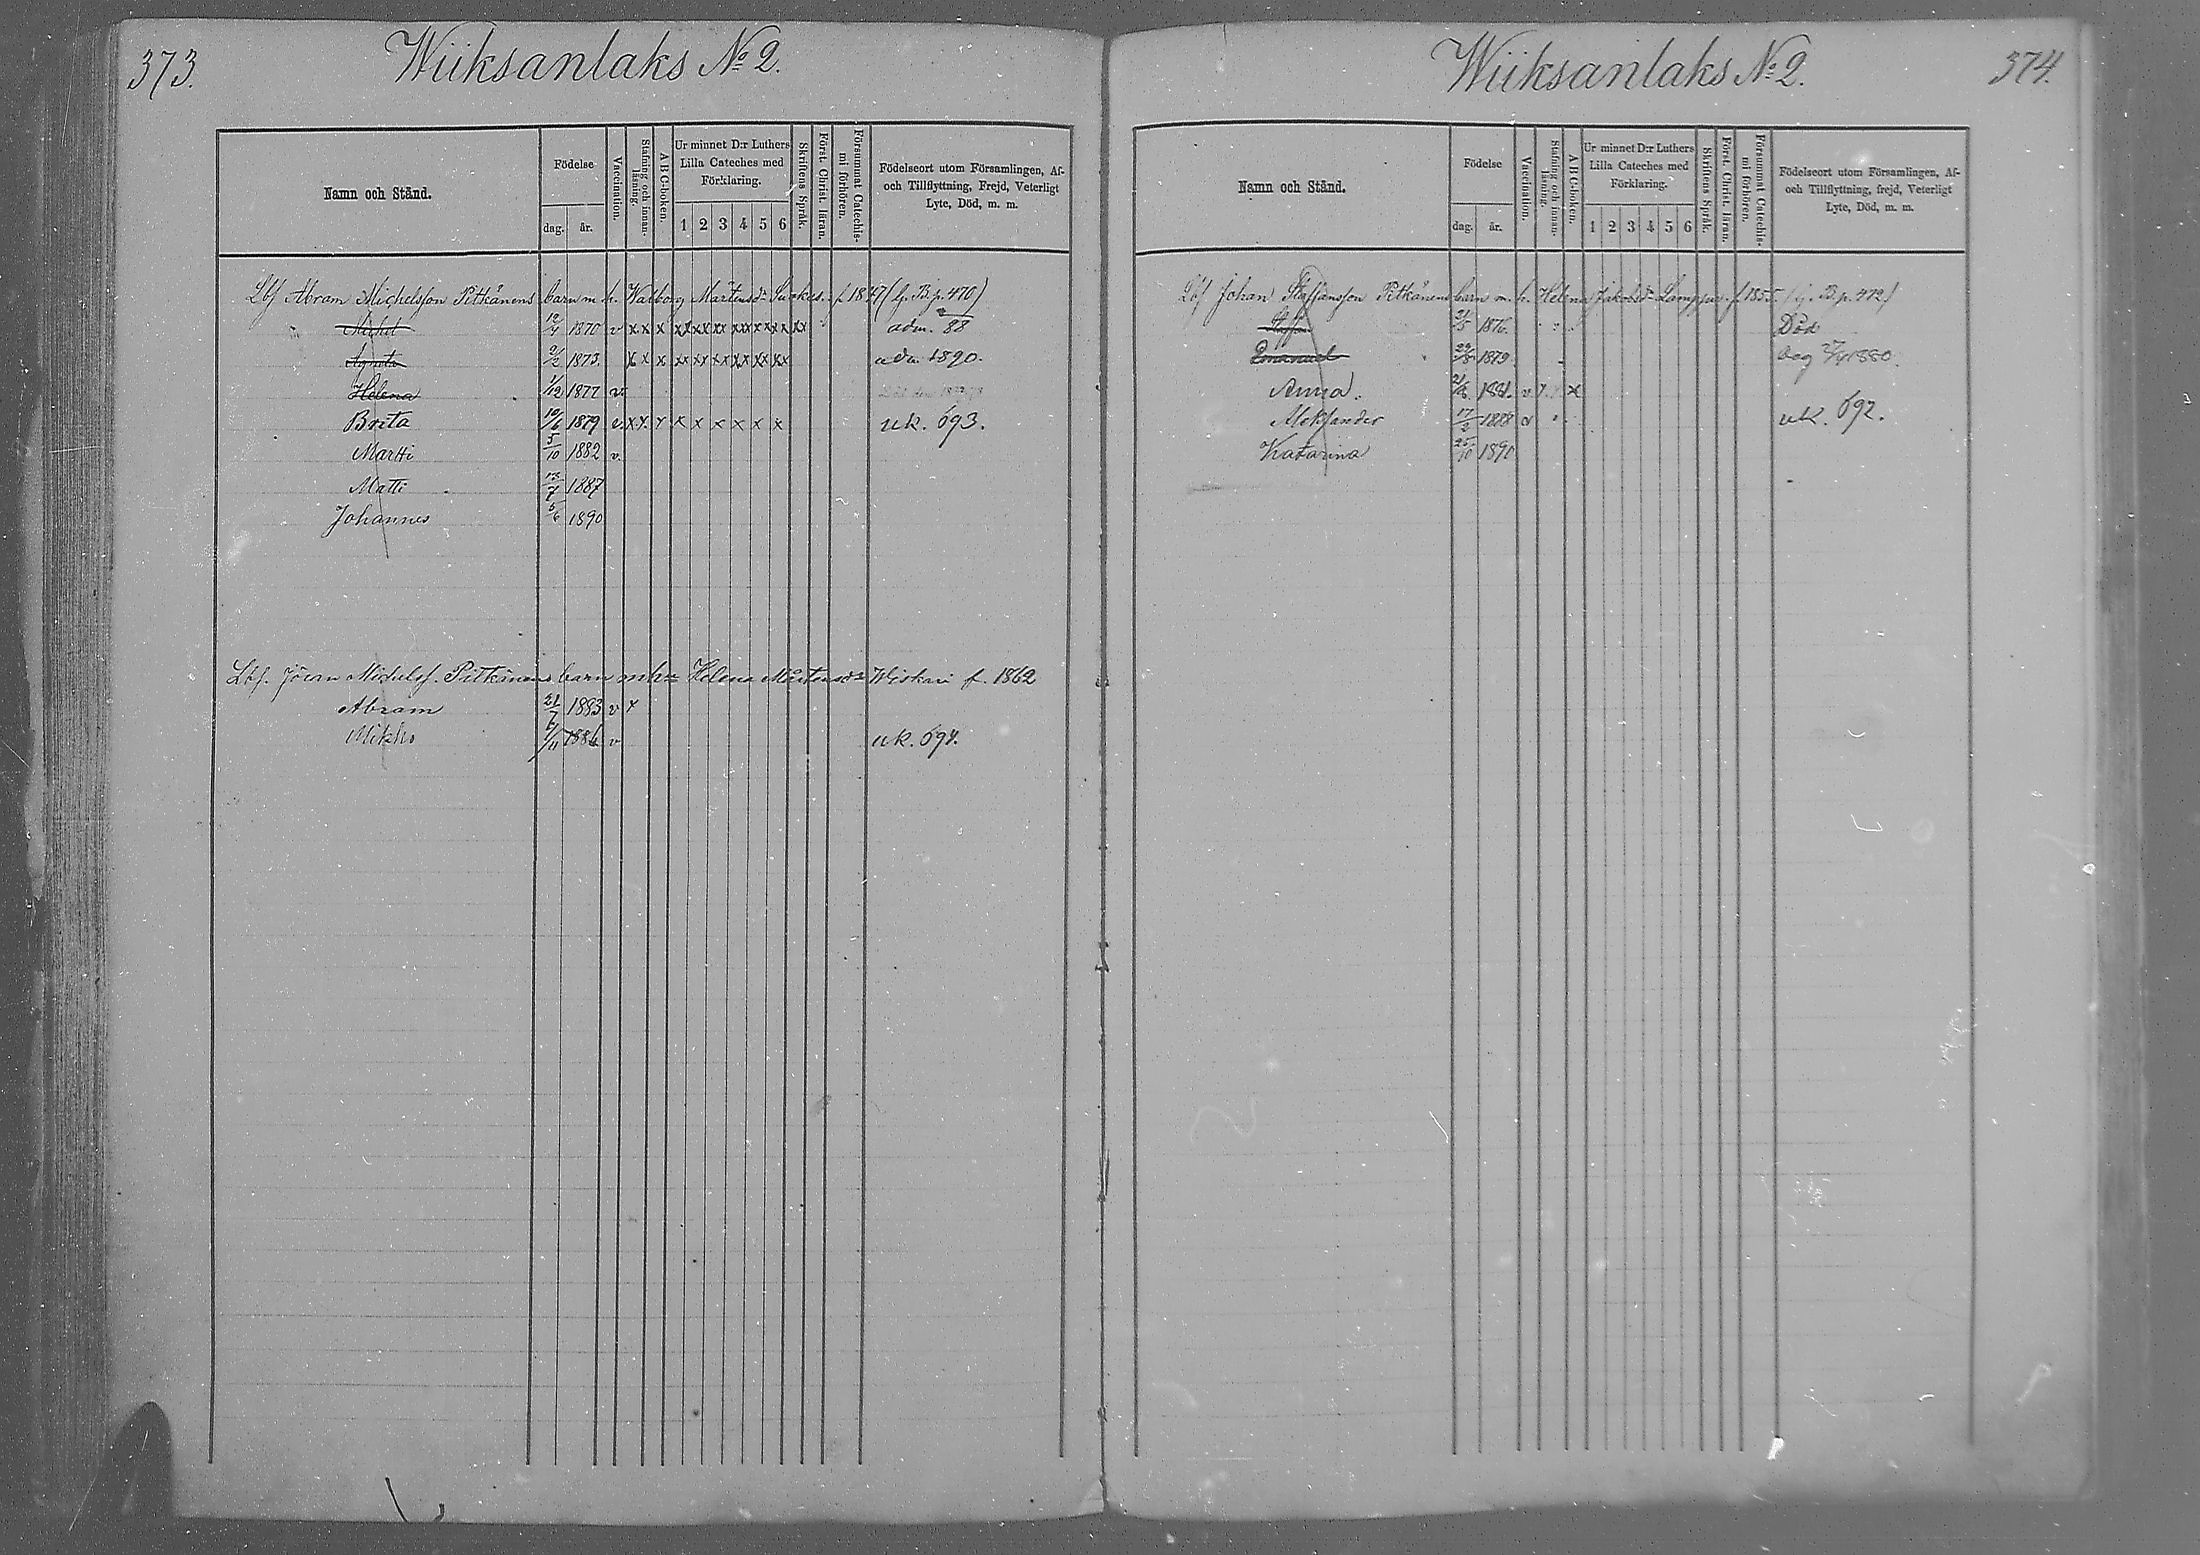 373.
Wiiksanlaks No 2.
Namn och Stånd.
Födelse
dag.
år.
Vaccination.
Stafning och innan-
läsning.
ABC-boken.
Ur minnet D:r Luthers
Lilla Cateches med
Förklaring.
1 2 3 4 5 6
Skriftens Språk.
Först. Christ. läran.
Försummat Catechis-
mi förhören.
Födelseort utom Församlingen, Af-
och Tillflyttning, Frejd, Veterligt
Lyte, Död, m. m.
Lbf Abram Michelsson Pitkänens barn m. h. Walborg Mårtensdr f. 1847 (lj. B. p. 470)
Michel 12/4 1870 v x x x xx xx xx xx xx xx xx adm. 88
Agneta 2/2 1873. x x x xx xx xx xx xx xx adm 1890.
Helena 1/12 1877 v.
Brita 10/6 1879 v. x x x x x x x x x uk. 693.
Martti 5/10 1882 v.
Matti 13/7 1887
Johannes 5/6 1890
Lbf. Jöran Michelss. Pitkänens barn m hu Helena Mårtensdr Wiskari f. 1862
Abram 21/7 1883 v x
Mikko 1/11 1886 v uk. 694.
Wiiksanlaks No 2.
374.
Namn och Stånd.
Födelse
dag.
år.
Vaccination.
Stafning och innan-
läsning.
ABC-boken.
Ur minnet D:r Luthers
Lilla Cateches med
Förklaring.
1 2 3 4 5 6
Skriftens Språk.
Först. Christ. läran.
Försummat Catechis-
mi förhören.
Födelseort utom Församlingen, Af-
och Tillflyttning, frejd, Veterligt
Lyte, Död, m. m.
Lbf Johan Staffansson Pitkänens barn m. h. Helena Jakobsdr f 1855 (lj. B. p. 472)
Staffan 21/5 1876. Död
Emanuel 29/8 1879 dog 27/4 1880.
Anna. 1881. v x
Aleksander 17/2 1888 v uk. 692.
Katarina 25/10 1890